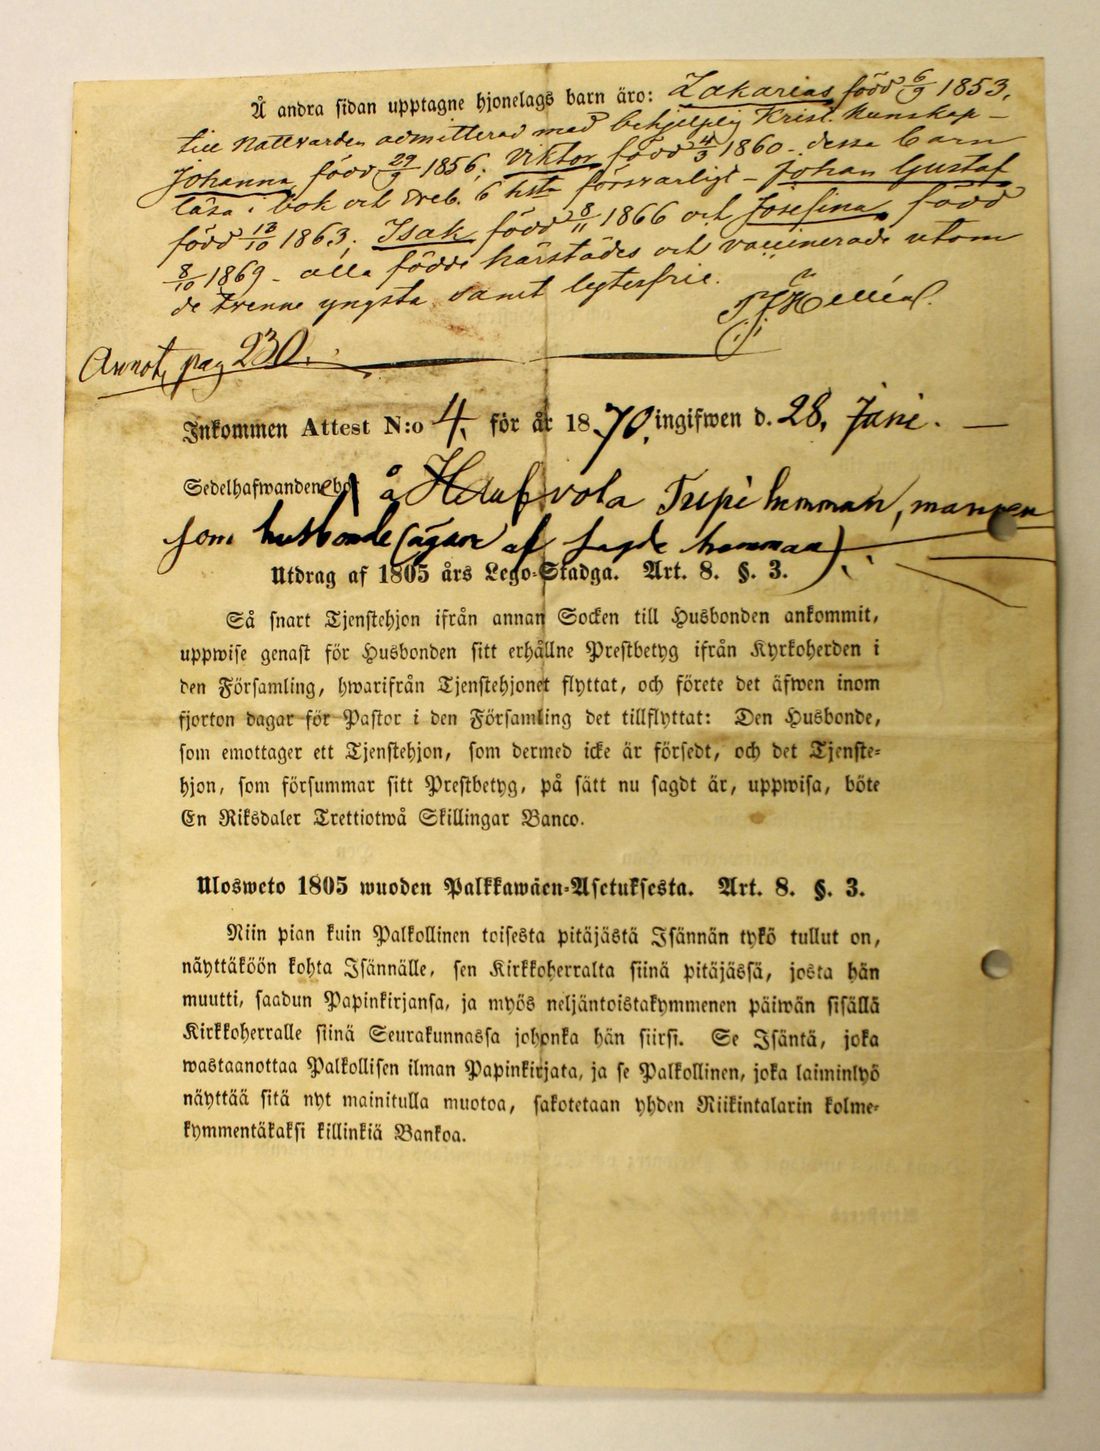 Å andra sidan upptagne hjonelags barn äro: Zakarias född 6/9 1853,
till Nattvarden admitterad med behjelplig Krist. Kunskap –
Johanna född 29/9 1856; Viktor född 4/3 1860 – dessa barn
läsa i bok och Sveb. 6 hst försvarligt – Johan Gustaf
född 13/10 1863; Isak född 8/11 1866 och Josefina född
8/10 1869 – alla födde härstädes och vaccinerade utom
de trenne yngsta samt lytesfrie.
Annot. pag 230.
Inkommen Attest N:o 4, för år 1870, ingifwen d. 28, Juni. —
Sedelhafwanden bo å vola Tupi hemman, mannen
som husbonde (ägare af sagde hemman).
Utdrag af 1805 års Lego-Stadga. Art. 8. §. 3.
Så snart Tjenstehjon ifrån annan Socken till Husbonden ankommit,
uppwise genast för Husbonden sitt erhållne Prestbetyg ifrån Kyrkoherden i
den Församling, hwarifrån Tjenstehjonet flyttat, och förete det äfwen inom
fjorton dagar för Pastor i den Församling det tillflyttat: Den Husbonde,
som emottager ett Tjenstehjon, som dermed icke är försedt, och det Tjenste-
hjon, som försummar sitt Prestbetyg, på sätt nu sagdt är, uppwisa, böte
En Riksdaler Trettiotwå Skillingar Banco.
Ulosweto 1805 wuoden Palkkawäen-Asetuksesta. Art. 8. §. 3.
Niin pian kuin Palkollinen toisesta pitäjästä Isännän tykö tullut on,
näyttäköön kohta Isännälle, sen Kirkkoherralta siinä pitäjässä, josta hän
muutti, saadun Papinkirjansa, ja myös neljäntoistakymmenen päiwän sisällä
Kirkkoherralle siinä Seurakunnassa johonka hän siirsi. Se Isäntä, joka
wastaanottaa Palkollisen ilman Papinkirjata, ja se Palkollinen, joka laiminlyö
näyttää sitä nyt mainitulla muotoa, sakotetaan yhden Riikintalarin kolme-
kymmentäkaksi killinkiä Bankoa.